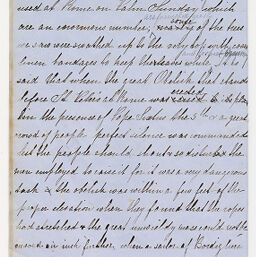 used at Rome on Palm Sunday which
are an enormous number, some of the trees
we saw were swathed up to the very top with
linen bandages to keep the leaves white. It is
said that when the great Obelisk that stands
before St Peter's at Rome was erected in its place
in the presence of Pope Sixtus the 5th & a great
crowd of people perfect silence was commanded
lest the people should shout & so disturb the
men employed to raise it for it was a very dangerous
task & the obelisk was within a few feet of the
proper elevation when they found that the ropes
had stretched & the great unwieldy mass could not be
moved an inch further, when a sailor of Bordighiera